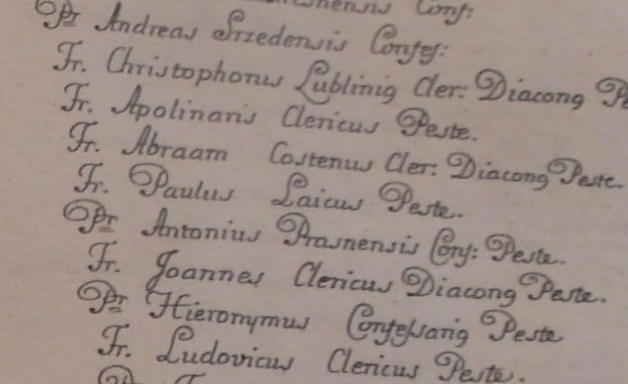 Conf:
Pr Andreas Srzedensis Confes:
Fr. Christophorus Lublinig Cler: Diacong
Fr. Apolinaris Clericus Peste.
Fr. Abraam Costenus Cler: Diacong Peste.
Fr. Paulus Laicus Peste.
Pr Antonius Prasnensis Conf: Peste.
Fr. Joannes Clericus Diacong Peste.
Pr Hieronymus Confessarig Peste
Fr. Ludovicus Clericus Peste.